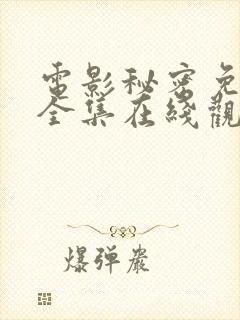 電影秘密免
全集在綫觀
爆弹嚴